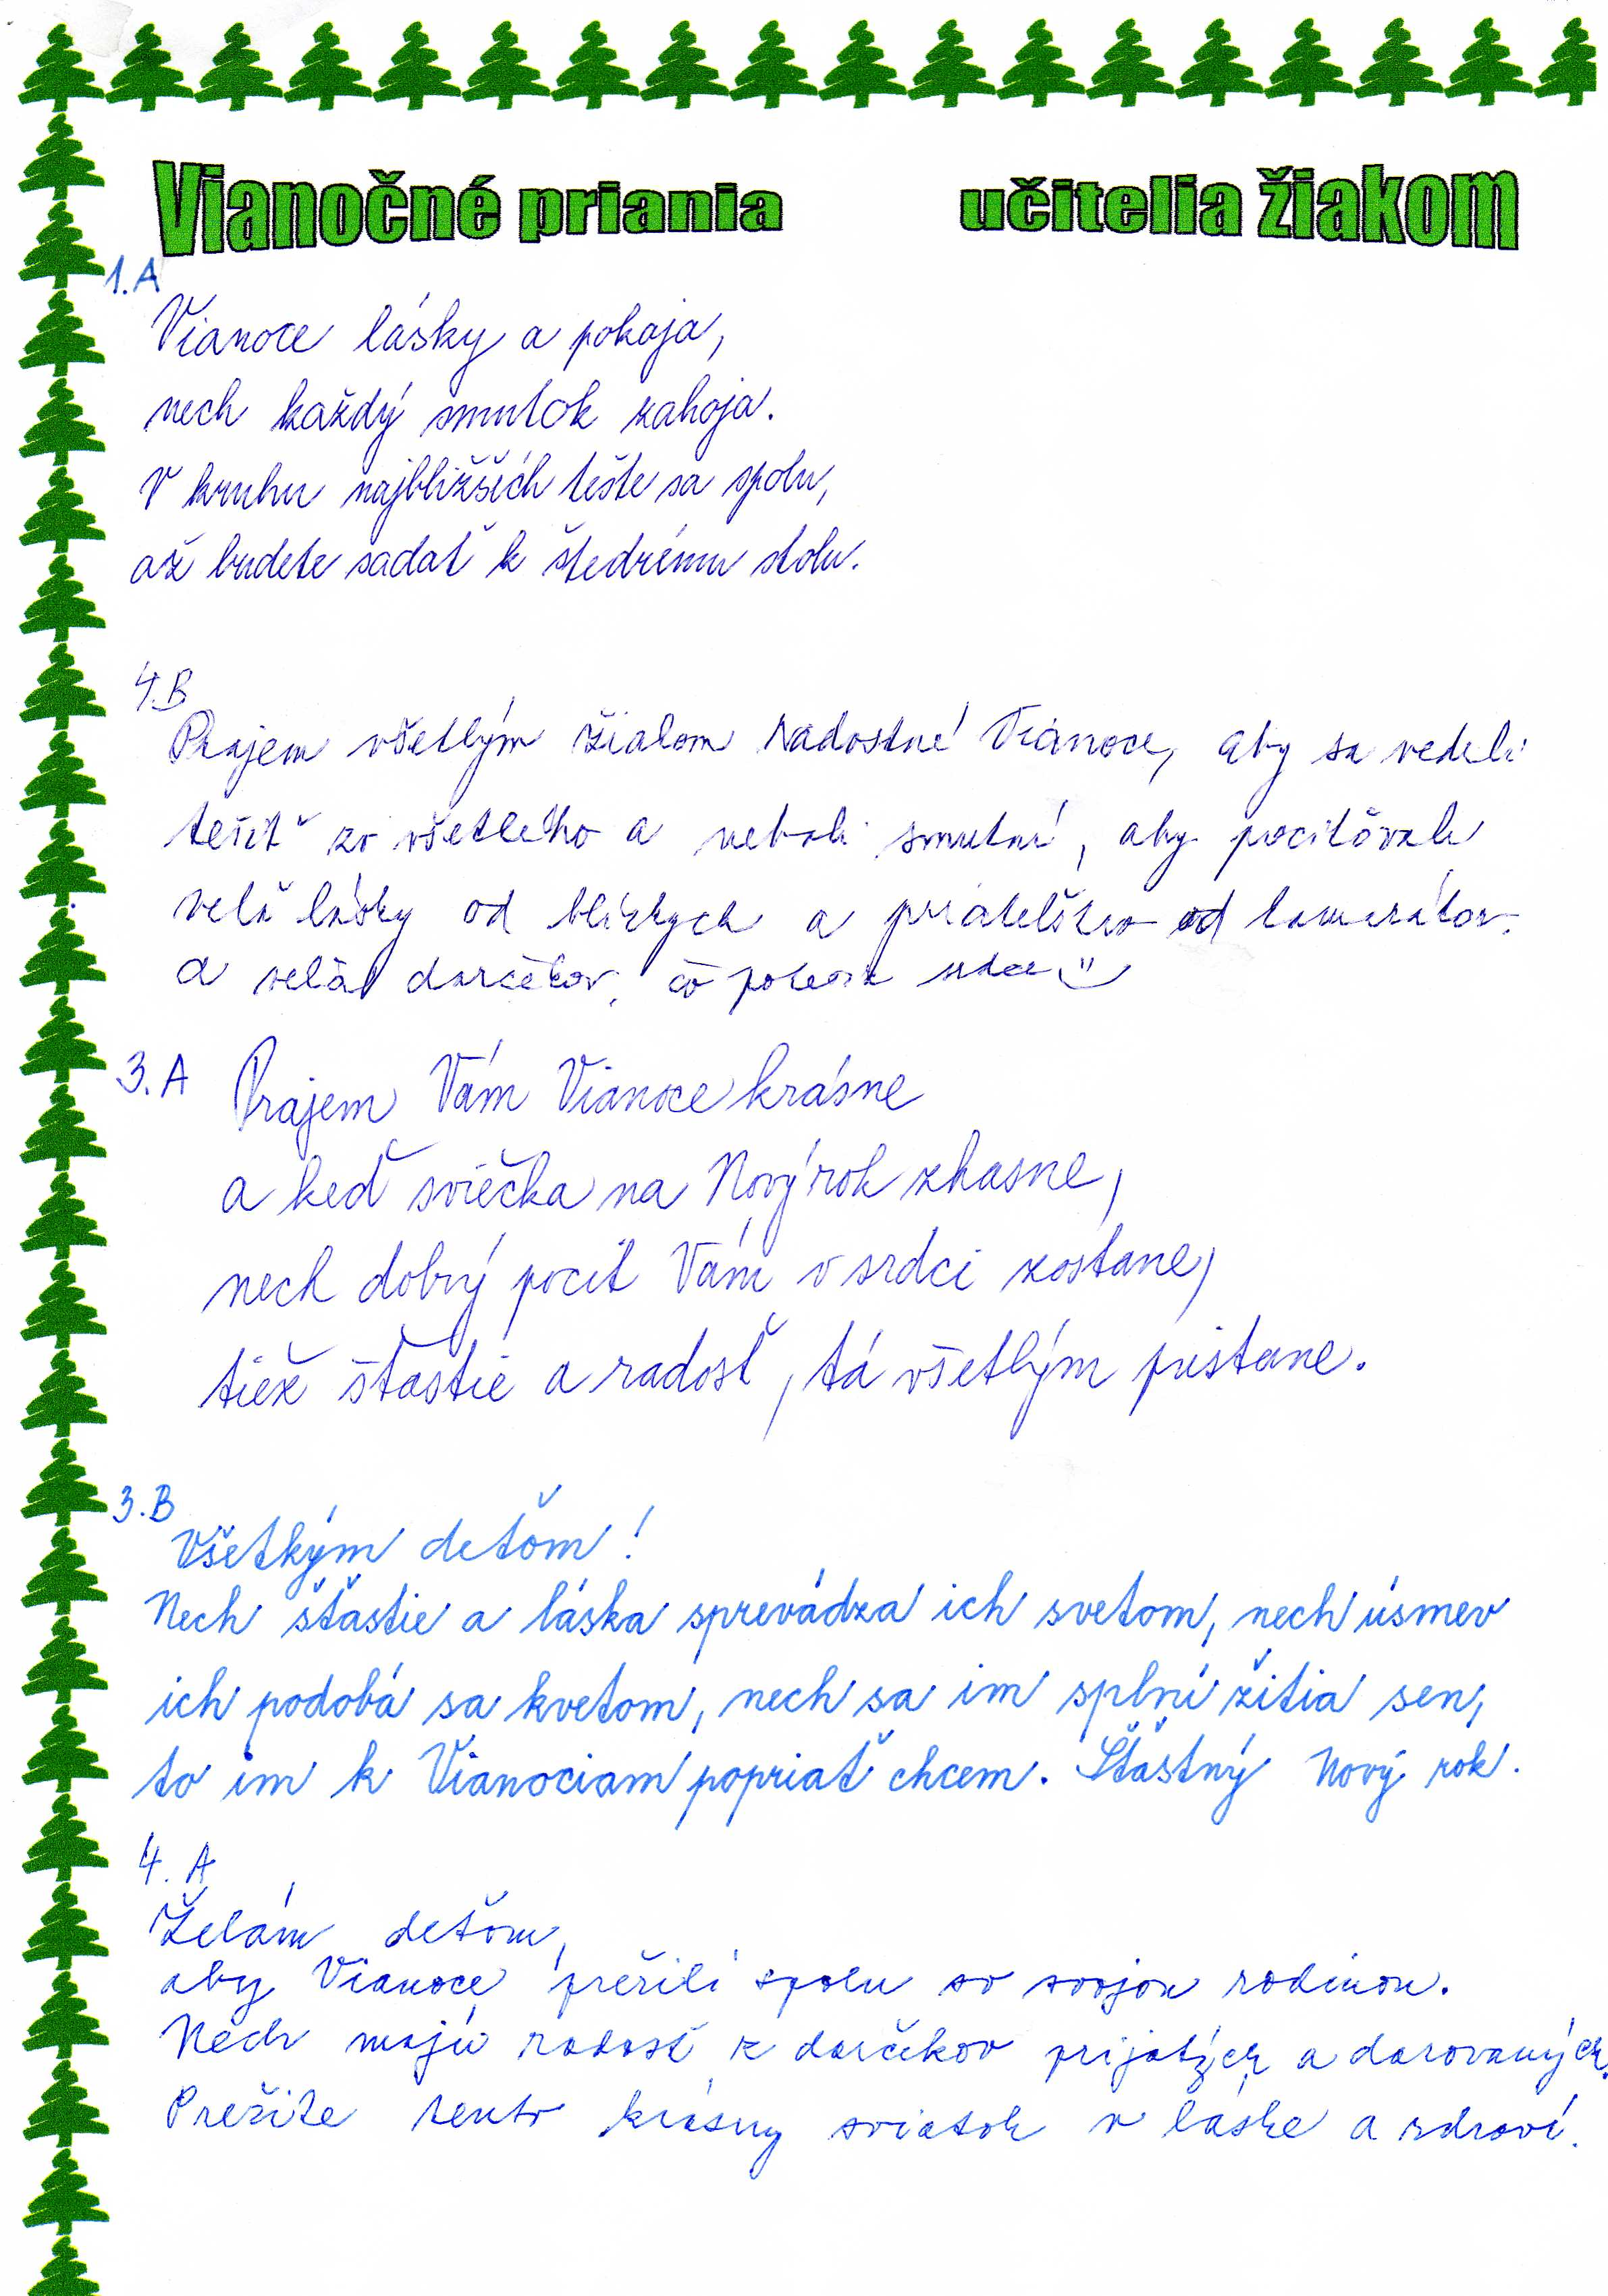 Vianočné priania učitelia žiakom
1.A
Vianoce lásky a pokoja,
nech každý smutok zahoja.
V kruhu najbližších tešte sa spolu,
až budete sadať k štedrému stolu.
4.B
Prajem všetkým žiakom radostné Vianoce, aby sa vedeli
tešiť zo všetkého a neboli smutní, aby pociťovali
veľa lásky od blízkych a priateľstvo od kamarátov
a veľa darčekov, čo poteší srdce
3.A
Prajem Vám Vianoce krásne
a keď sviečka na Nový rok zhasne,
nech dobrý pocit Vám v srdci zostane,
tiež šťastie a radosť, tá všetkým pristane.
3.B
Všetkým deťom!
Nech šťastie a láska sprevádza ich svetom, nech úsmev
ich podobá sa kvetom, nech sa im splní žitia sen,
to im k Vianociam popriať chcem. Šťastný Nový rok.
4. A
Želám deťom,
aby Vianoce prežili spolu so svojou rodinou.
Nech majú radosť z darčekov prijatých a darovaných.
Prežite tento krásny sviatok v láske a zdraví.